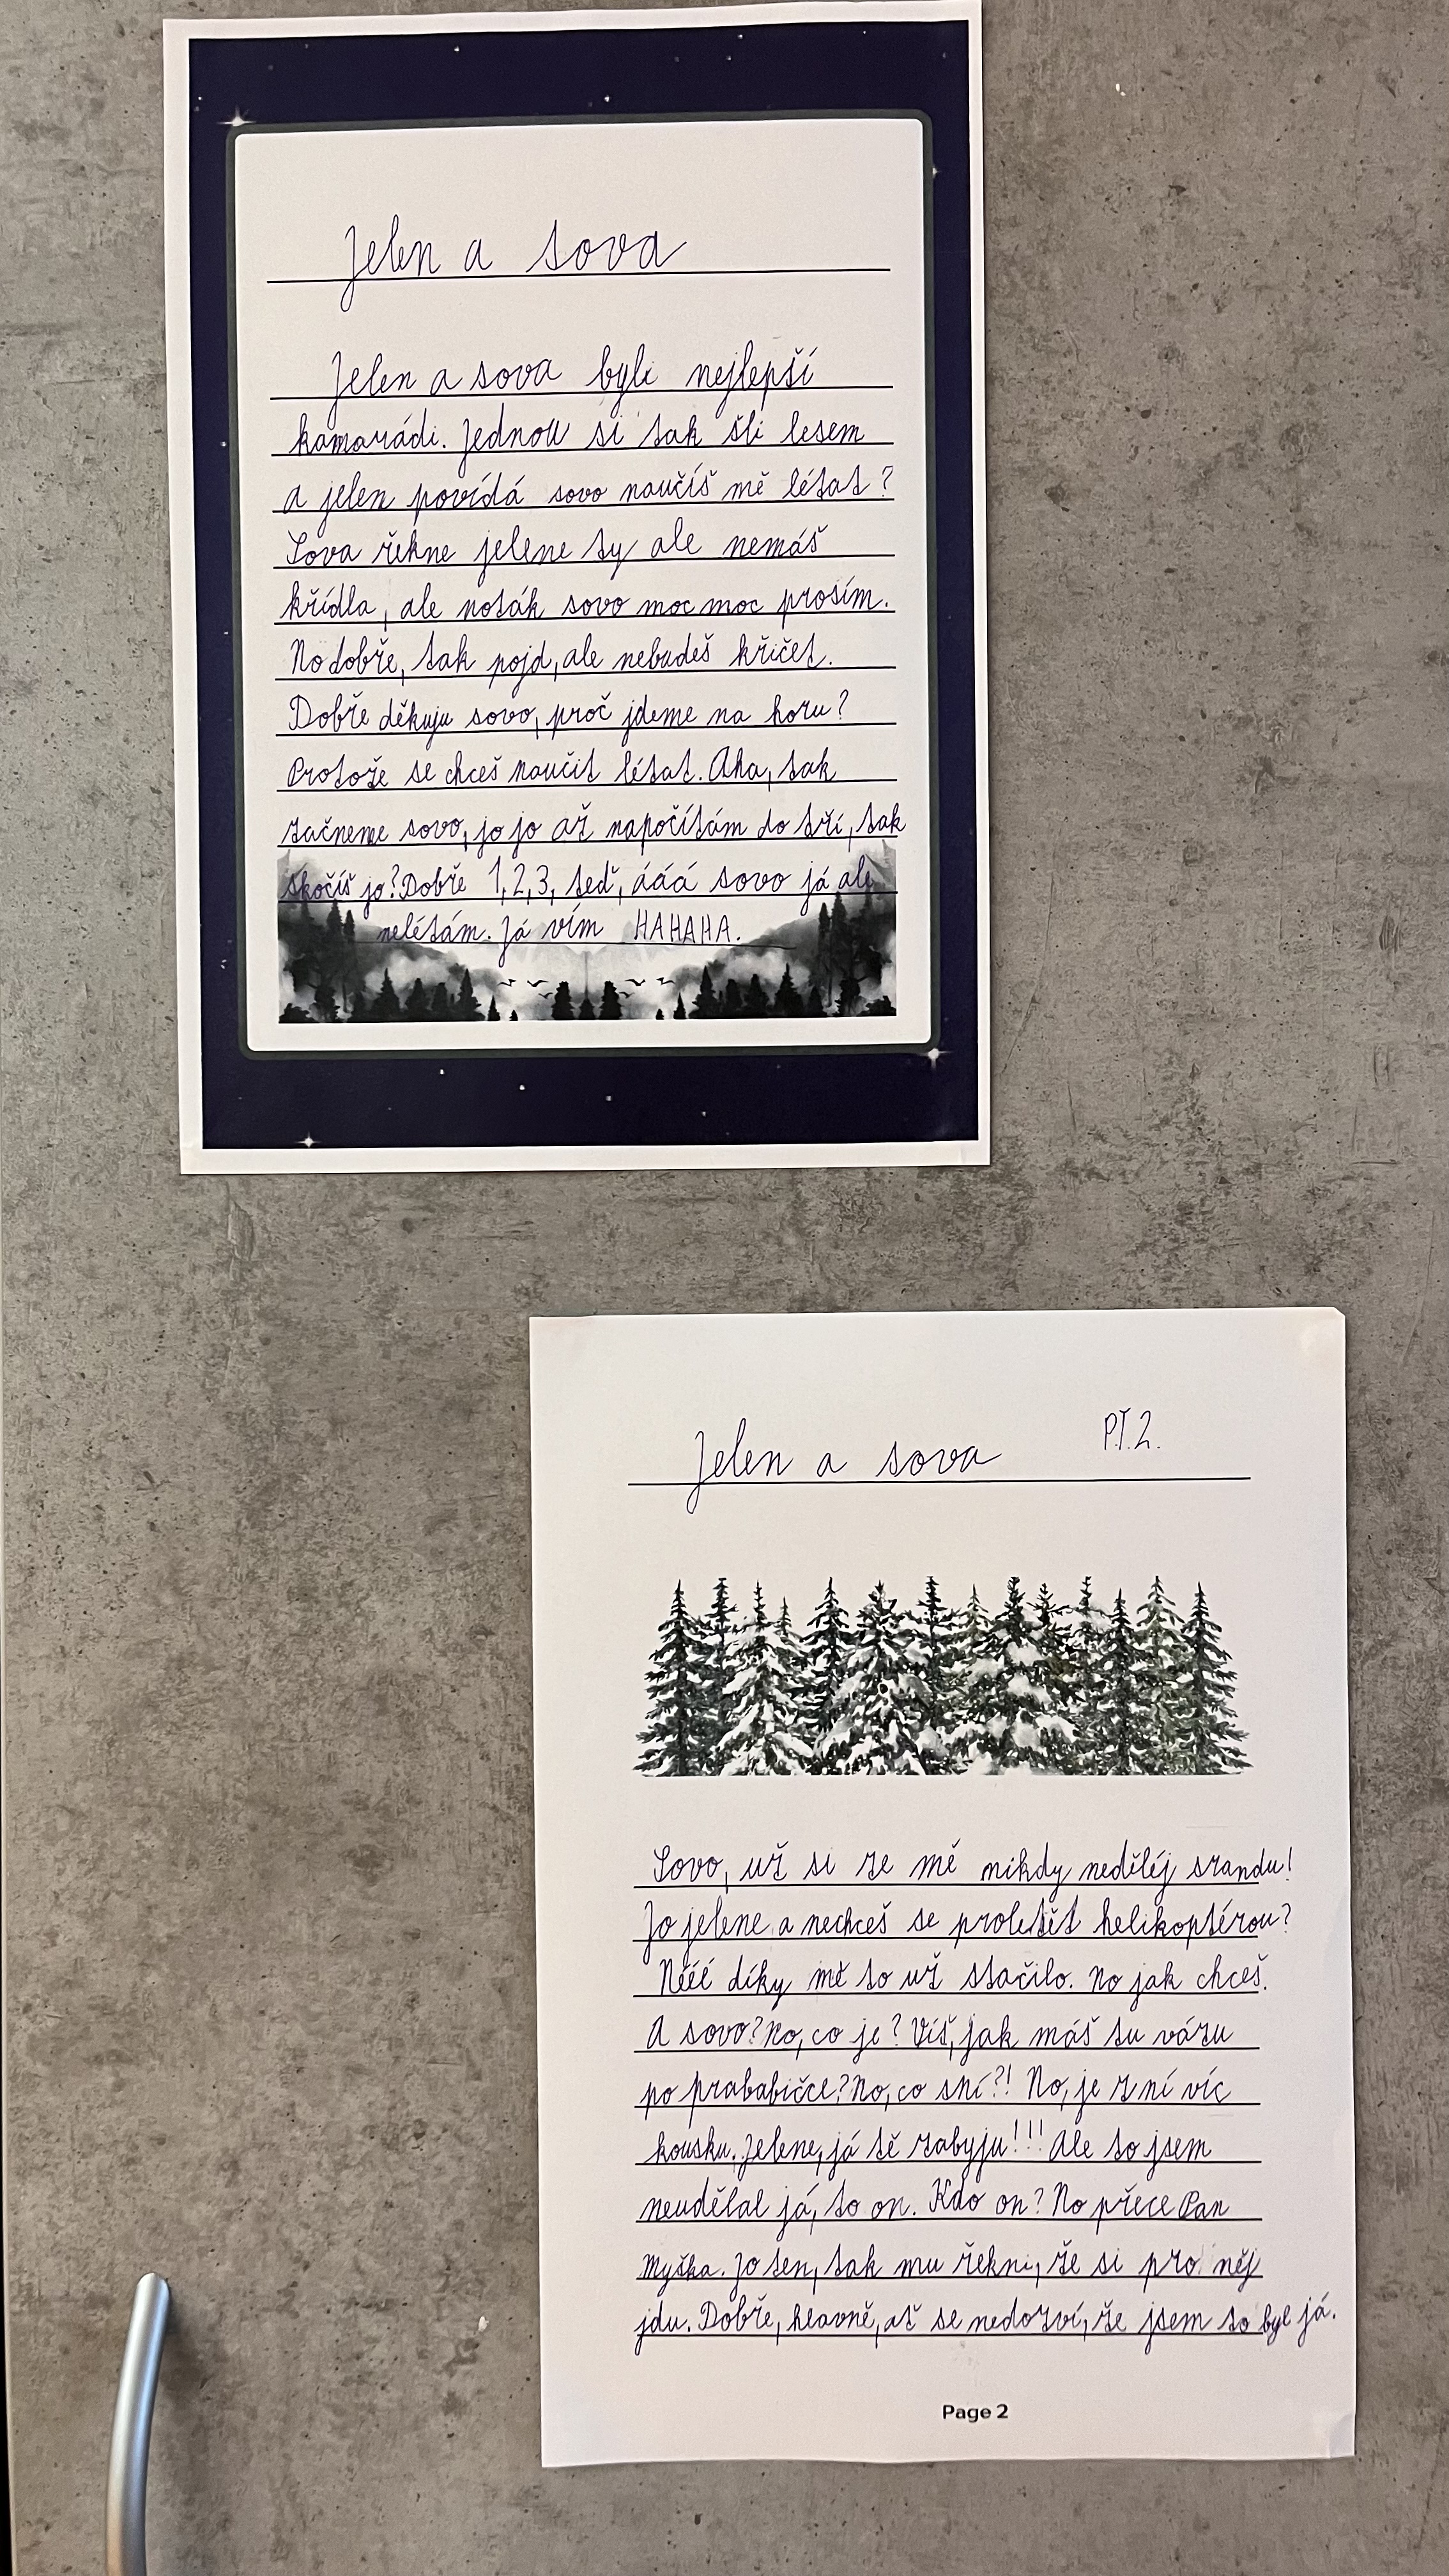 Jelen a sova
Jelen a sova byli nejlepší
kamarádi. Jednou si tak šli lesem
a jelen povídá sovo naučíš mě létat?
Sova řekne jelene ty ale nemáš
křídla, ale noták sovo moc moc prosím.
No dobře, tak pojd, ale nebudeš křičet.
Dobře děkuju sovo, proč jdeme na horu?
Protože se chceš naučit létat. Aha, tak
začneme sovo, jo jo až napočítám do tří, tak
skočíš jo? Dobře 1, 2, 3, teď, ááá sovo já ale
nelétám. Já vím HAHAHA.
Jelen a sova PT.2.
Sovo, už si ze mě nikdy nedělěj srandu!
Jo jelene a nechceš se proletět helikoptérou?
Nééé díky mě to už stačilo. No jak chceš.
A sovo? No, co je? Víš, jak máš tu vázu
po prababičce? No, co sní?! No, je z ní víc
kousku. Jelene, já tě zabyju!!! Ale to jsem
neudělal já, to on. Kdo on? No přece Pan
Myška. Jo ten, tak mu řekni, že si pro něj
jdu. Dobře, hlavně, ať se nedozví, že jsem to byl já.
Page 2